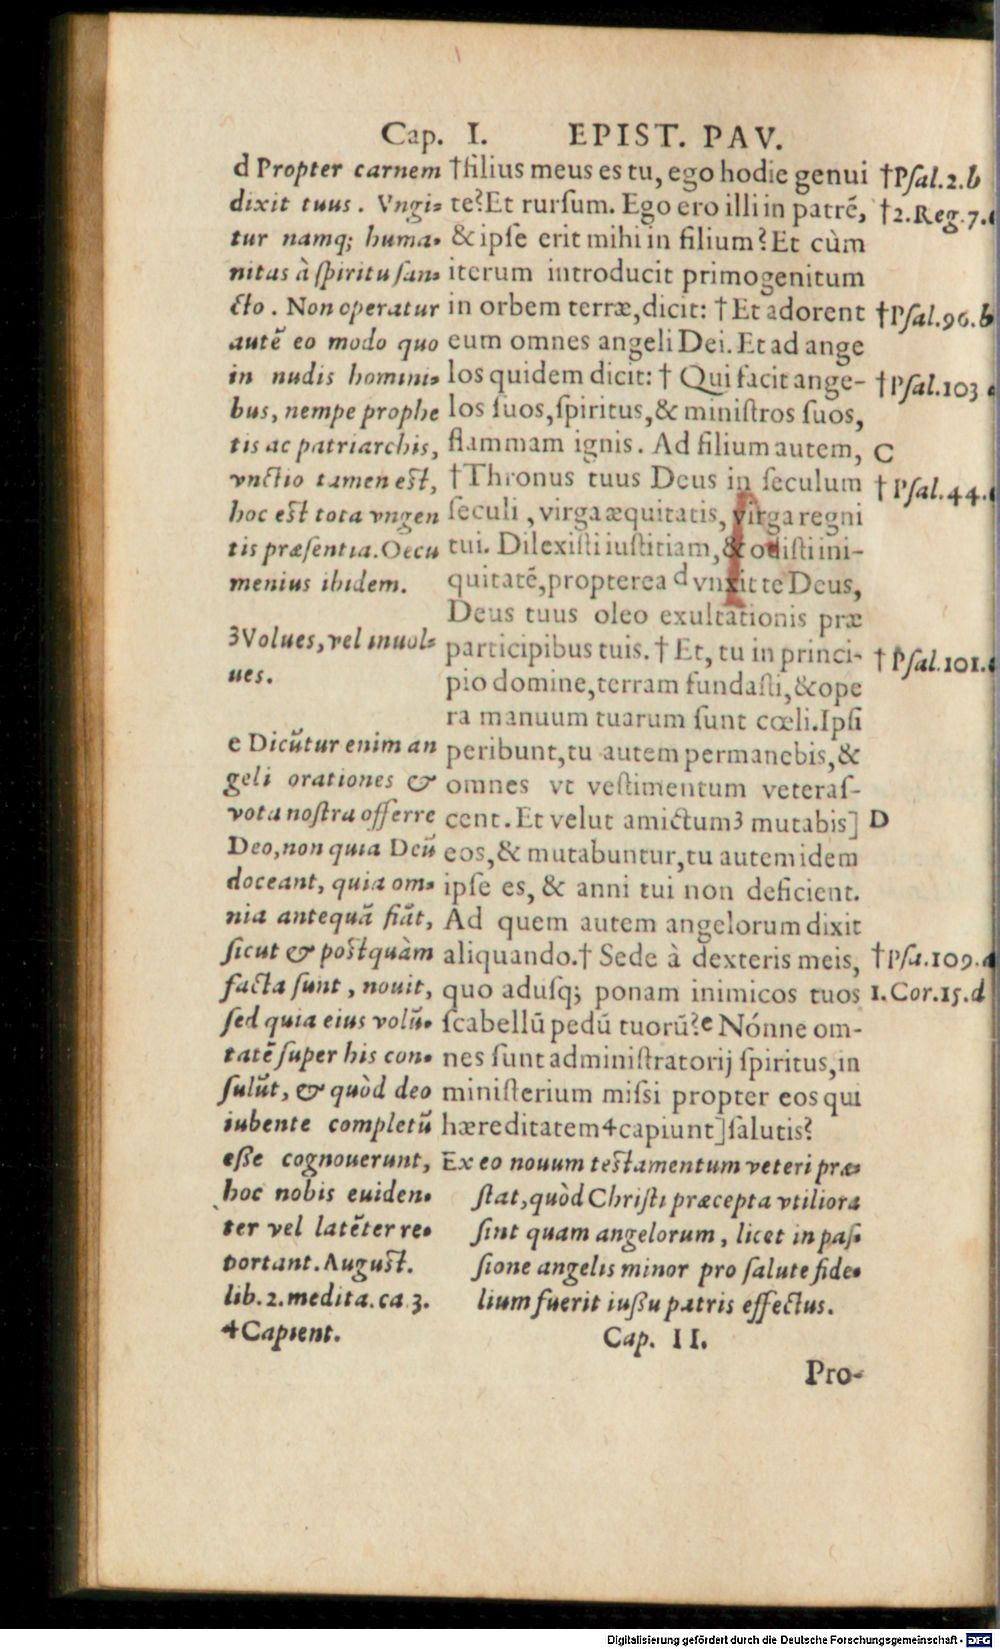 Cap. I. EPIST. PAV.
d Propter carnem
dixit tuus. Vngi-
tur namq; huma-
nitas à ſpiritu ſan-
cto. Non operatur
autē eo modo quo
in nudis homini-
bus, nempe prophe
tis ac patriarchis,
vnctio tamen est,
hoc est tota vngen
tis præſentia. Oecu
menius ibidem.
3 Volues, vel inuol-
ues.
e Dicūtur enim an
geli orationes &
vota noſtra offerre
Deo, non quia Deū
doceant, quia om-
nia antequā fiāt,
ſicut & postquàm
facta ſunt, nouit,
ſed quia eius volū-
tatē ſuper his con-
ſulūt, & quòd deo
iubente completū
eſſe cognouerunt,
hoc nobis euiden-
ter vel latēter re-
portant. August.
lib. 2. medita. ca. 3.
4 Capient.
†filius meus es tu, ego hodie genui
te? Et rurſum. Ego ero illi in patrē,
& ipſe erit mihi in filium? Et cùm
iterum introducit primogenitum
in orbem terræ, dicit: † Et adorent
eum omnes angeli Dei. Et ad ange
los quidem dicit: † Qui facit ange-
los ſuos, ſpiritus, & miniſtros ſuos,
flammam ignis. Ad filium autem,
†Thronus tuus Deus in ſeculum
ſeculi, virga æquitatis, virga regni
tui. Dilexiſti iuſtitiam, & odiſti ini-
quitatē, propterea d vnxit te Deus,
Deus tuus oleo exultationis præ
participibus tuis. † Et, tu in princi-
pio domine, terram fundaſti, & ope
ra manuum tuarum ſunt cœli. Ipſi
peribunt, tu autem permanebis, &
omnes vt veſtimentum veteraſ-
cent. Et velut amictum 3 mutabis]
eos, & mutabuntur, tu autem idem
ipſe es, & anni tui non deficient.
Ad quem autem angelorum dixit
aliquando. † Sede à dexteris meis,
quo aduſq; ponam inimicos tuos
ſcabellū pedū tuorū? e Nónne om-
nes ſunt adminiſtratorij ſpiritus, in
miniſterium miſsi propter eos qui
hæreditatem 4 capiunt] ſalutis?
Ex eo nouum teſtamentum veteri præ-
ſtat, quòd Chriſti præcepta vtiliora
ſint quam angelorum, licet in paſ-
ſione angelis minor pro ſalute fide-
lium fuerit iuſſu patris effectus.
Cap. II.
Pro-
†Pſal. 2. b
†2. Reg. 7.
†Pſal. 96. b
†Pſal. 103
C
†Pſal. 44.
†Pſal. 101.
D
†Pſa. 109. a
1. Cor. 15. d
Digitalisierung gefördert durch die Deutsche Forschungsgemeinschaft - DFG